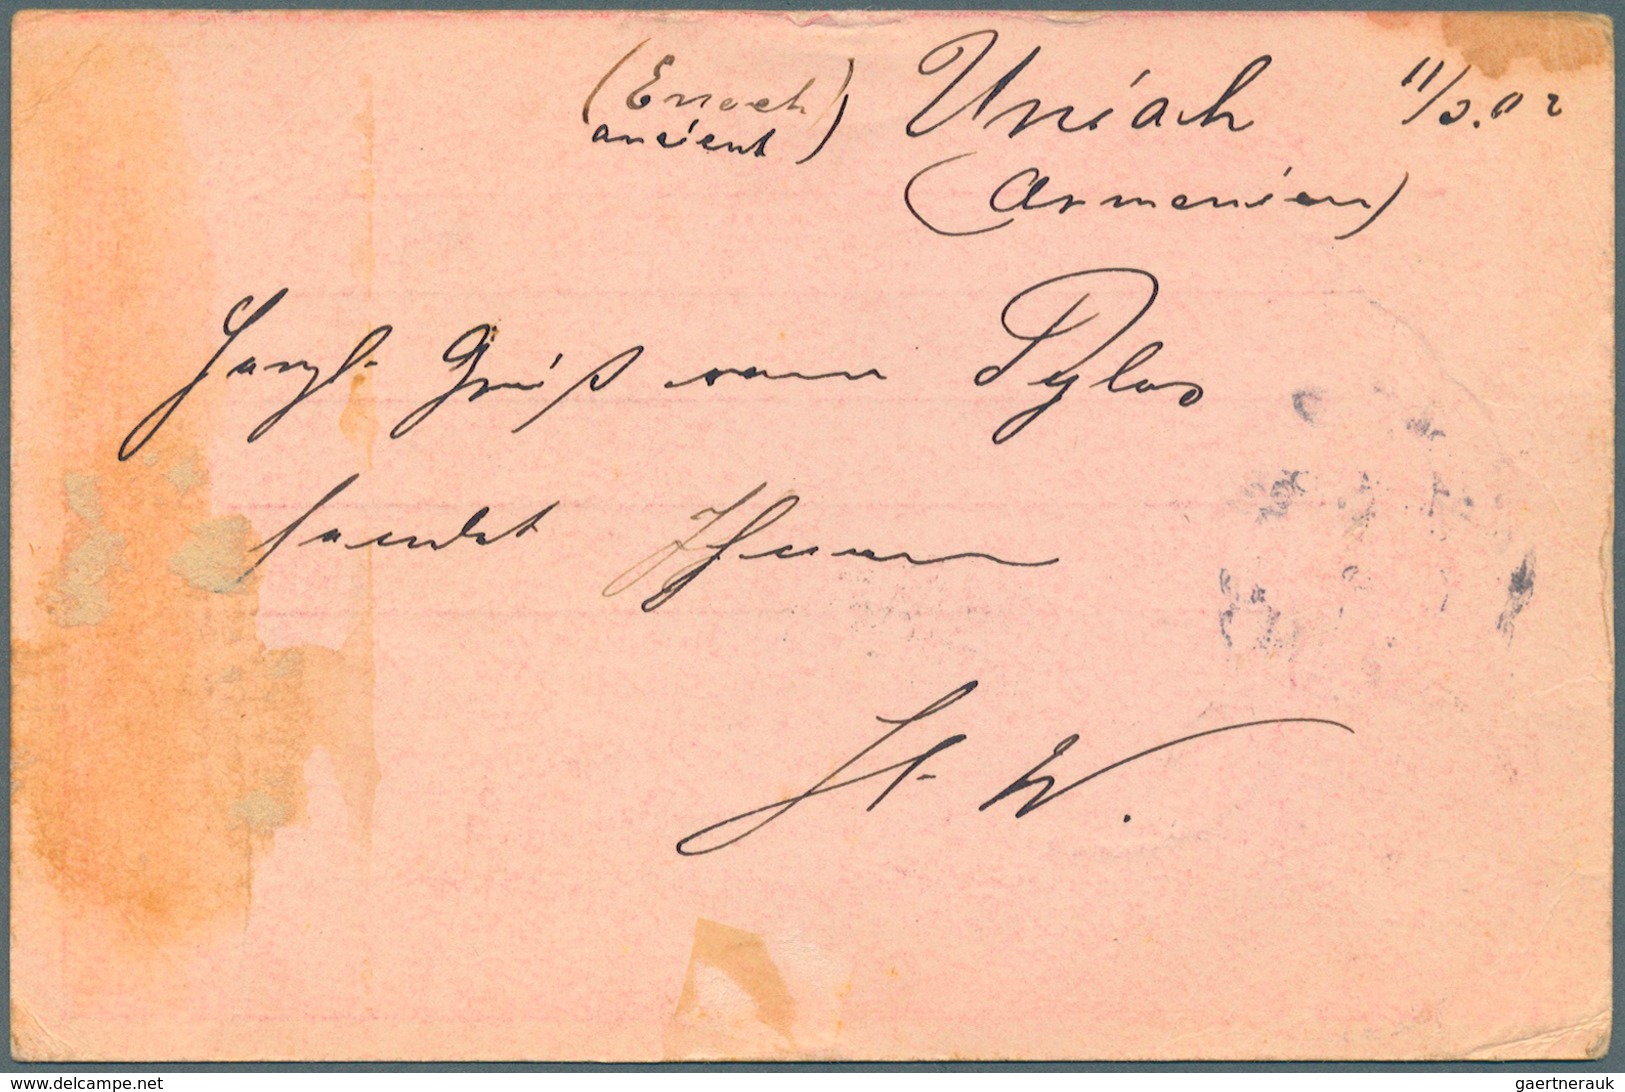 (Enoch ancient) Uniah 11/3.02
(Armenien)
Herzl. Gruß vom Pylos
sendet Ihnen
St. W.
www.delcampe.net
gaertnerauk